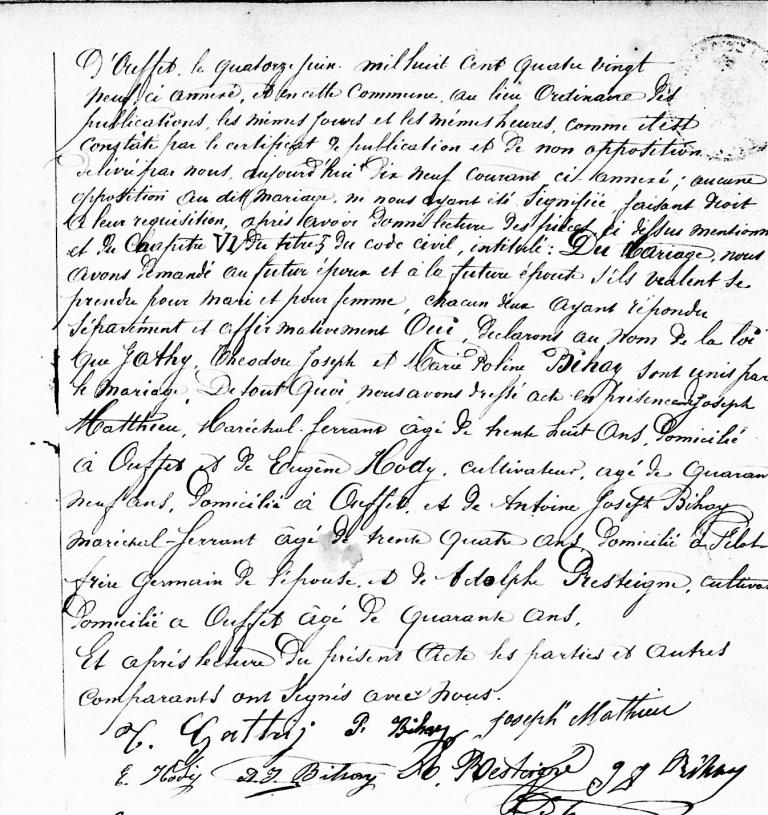 D'Ouffet, le quatorze juin mil huit cent quatre vingt
neuf, ci annexé, et en cette Commune, au lieu Ordinaire des
publications, les mêmes jours et les mêmes heures, comme il est
constaté par le certificat de publication et de non opposition
délivré par nous, aujourd'hui dix neuf courant ci-annexé; aucune
opposition au dit mariage, ne nous ayant été signifiée, faisant droit
à leur requisition, après avoir donné lecture des pièces ci dessus mentionn
et du Chapitre VI du titre 5 du code civil, intitulé: Du Mariage, nous
avons demandé au futur époux et à la future épouse s'ils veulent se
prendre pour mari et pour femme, chacun d'eux ayant répondu
séparément et affirmativement Oui, déclarons au nom de la loi
que Gathy, Theodore Joseph et Marie Poline Bihay sont unis par
le mariage. De tout Quoi, nous avons dressé acte en présence de Joseph
Matthieu, Maréchal-ferrant âgé de trente huit Ans, Domicilié
à Ouffet et de Eugène Hody, cultivateur, agé de quaran
neuf ans, Domicilié à Ouffet, et de Antoine Joseph Bihay
maréchal-ferrant âgé de trente quatre ans, domicilié à
frère germain de l'épouse, et de Adolphe Presteigne, cultivat
Domicilié a Ouffet âgé de quarante ans.
Et après lecture du présent Acte les parties et autres
comparants ont signés avec nous.
T. Gathy P. Bihay Joseph Mathieu
E. Hody A. J. Bihay A. Presteigne J J Bihay